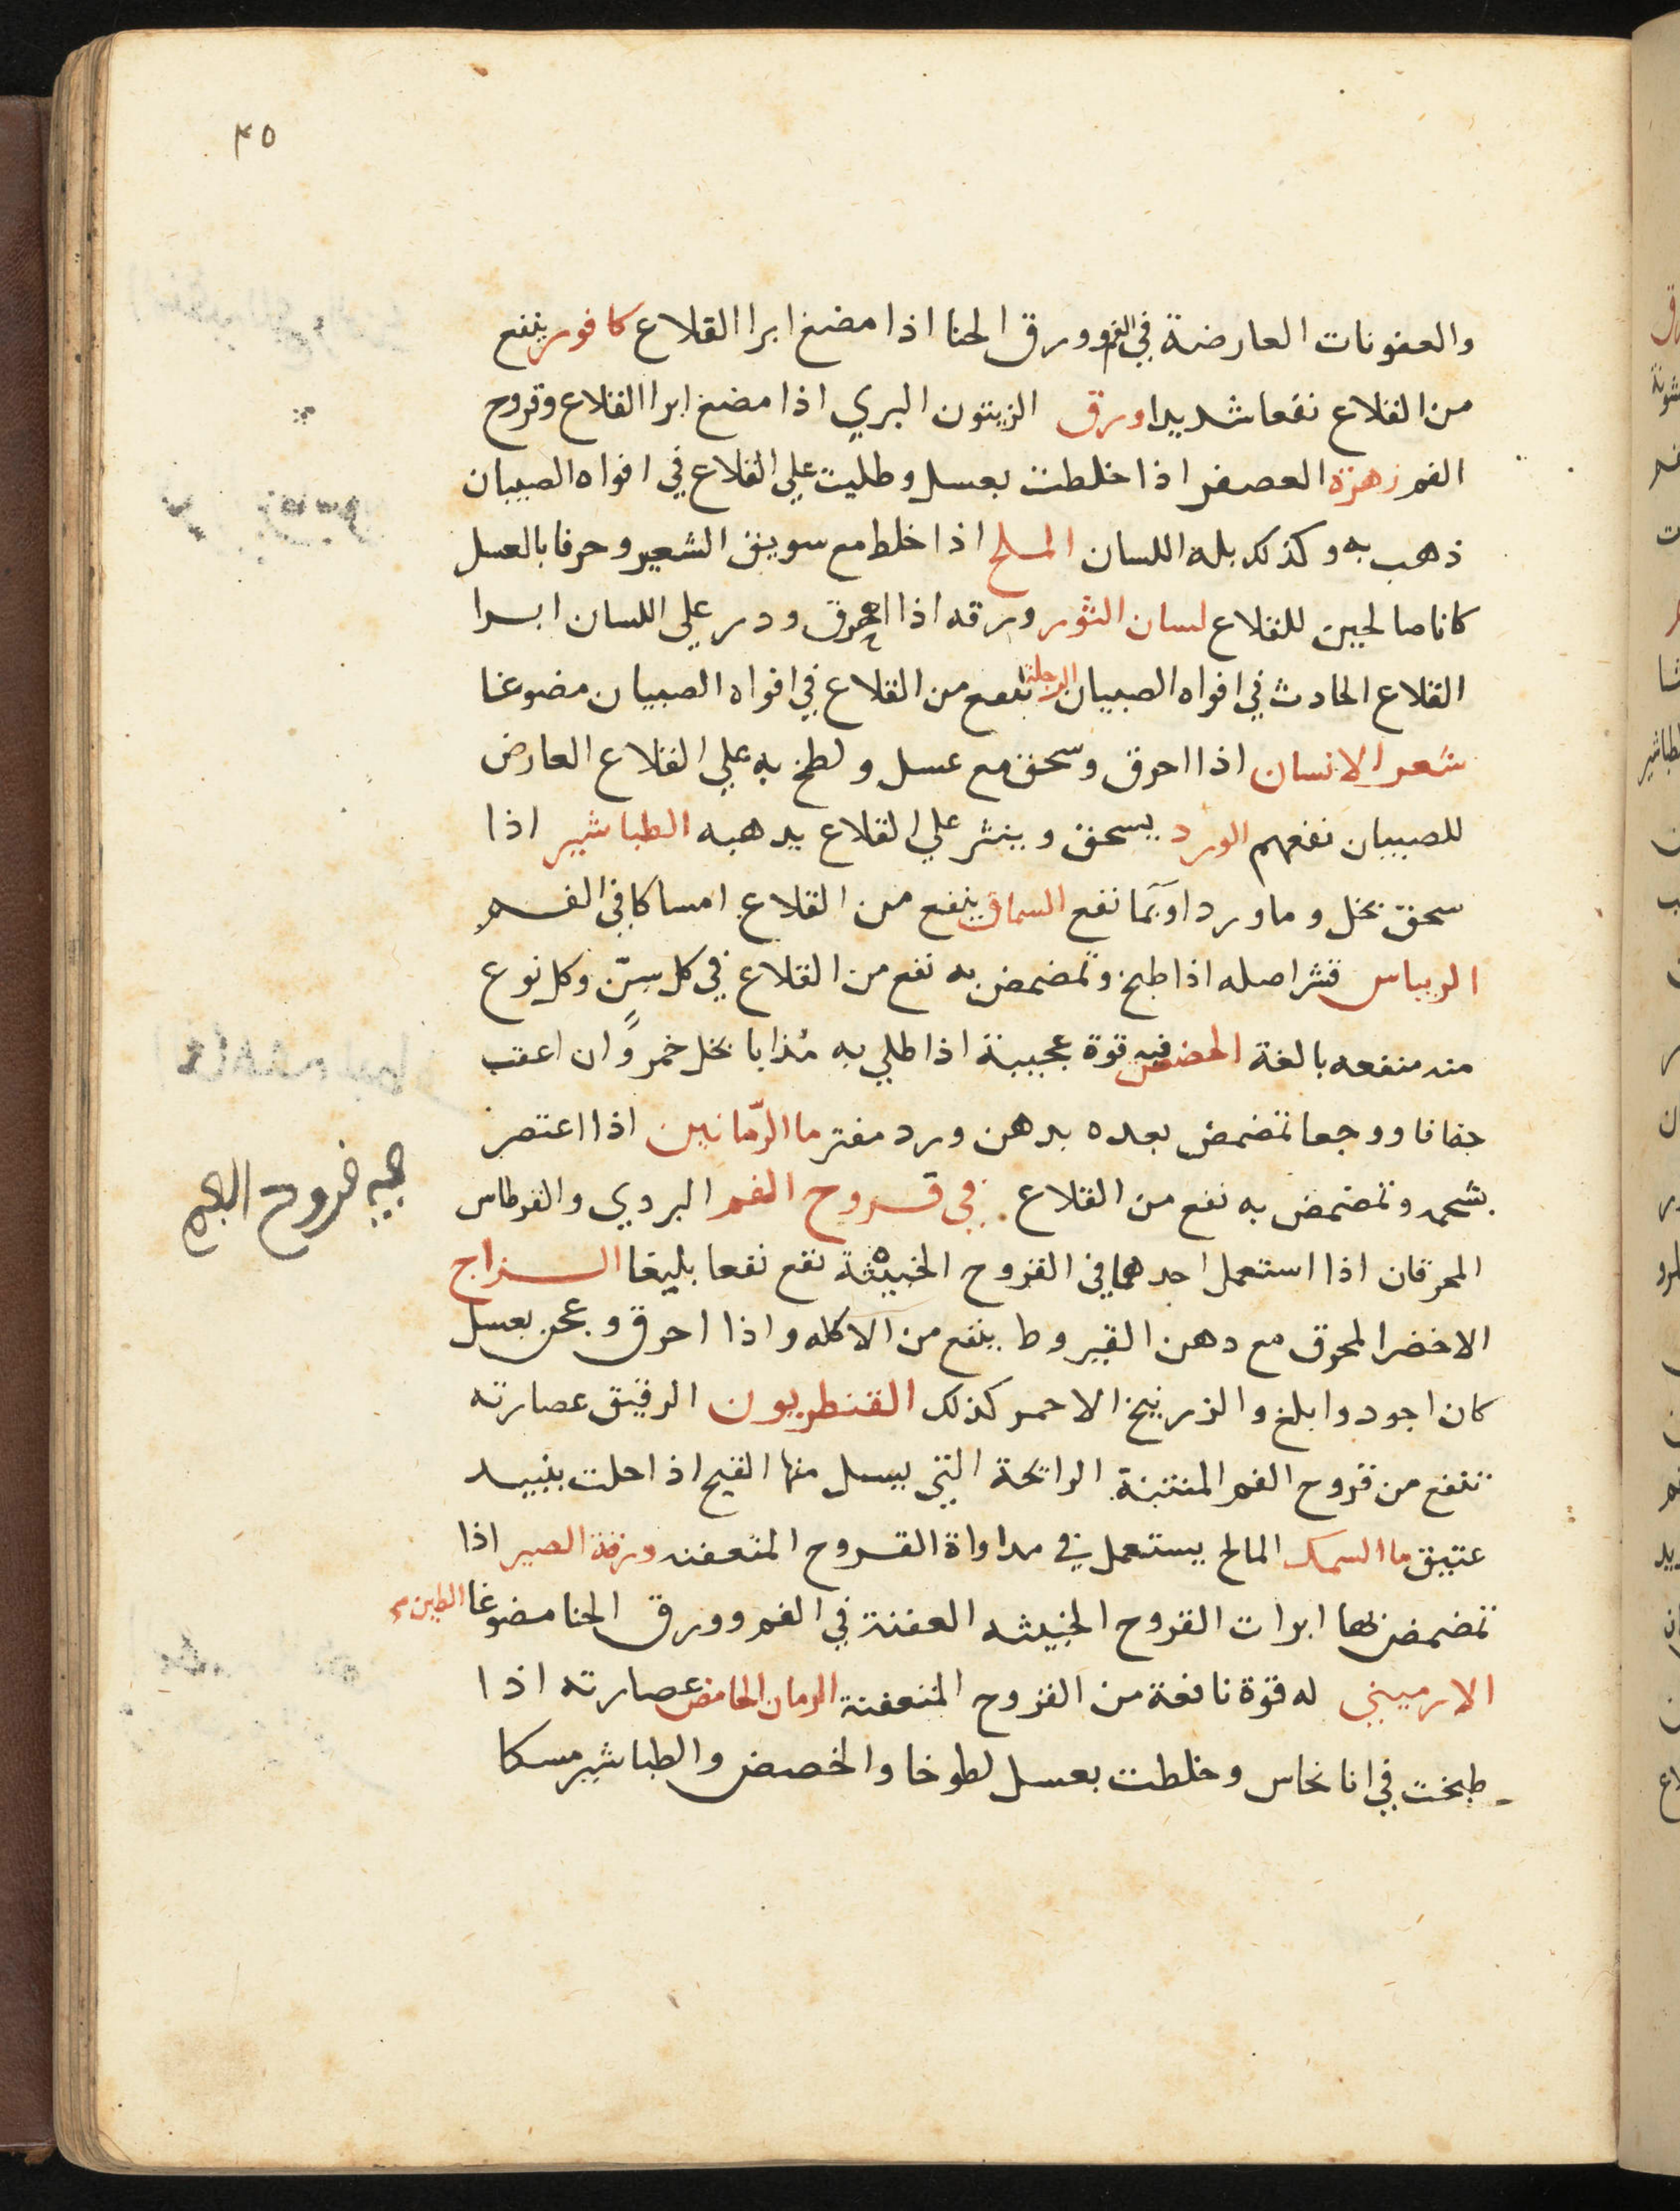 ٤٥
والعفونات العارضة في الفم وورق الحنا اذا مضغ ابرا القلاع كافور ينفع
من القلاع نفعا شديدا ورق الزيتون البري اذا مضغ ابرا القلاع وقروح
الفم زهرة العصفر اذا خلطت بعسل وطليت علي القلاع في افواه الصبيان
ذهب به وكذلك بلة اللسان الملح اذا خلط مع سويق الشعير وحرفا بالعسل
كانا صالحين للقلاع لسان الثور ورقه اذا احرق ودر علي اللسان ابرا
القلاع الحادث في افواه الصبيان الرجلة تنفع من القلاع في افواه الصبيان مضوغا
شعر الانسان اذا احرق وسحق مع عسل ولطخ به علي القلاع العارض
للصبيان نفعهم الورد يسحق وينثر علي القلاع يدهبه الطباشير اذا
سحق بخل وما ورد نفع السماق ينفع من القلاع امساكا في الفم
الريباس قشر اصله اذا طبخ وتمضمض به نفع من القلاع في كل سنّ وكل نوع
منه منفعه بالغة الحضض فيه قوة عجيبة اذا طلي به مُذابا بخل خمر وان اعقب
جفافا ووجعا تمضمض بعده بدهن ورد مفتر ما الرّمانين اذا اعتصر
بشحمه وتمضمض به نفع من القلاع . في قروح الفم البردي والقرطاس
المحرقان اذا استعمل احدهما في القروح الخبيثة نفع نفعا بليغا الزاج
الاخضر المحرق مع دهن القيروط ينفع من الاكله واذا احرق وعجن بعسل
كان اجود وابلغ والزرنيخ الاحمر كذلك القنطريون الرقيق عصارته
تنفع من قروح الفم المنتنة الرائحة التي يسيل منها القيح اذا حلت بنبيد
عتيق ما السمك المالح يستعمل في مداواة القروح المتعفنه ومرقة الصير اذا
تمضمض بها ابرات القروح الخبيثه العفنة في الفم وورق الحنا مضوغا الطين
الارميني له قوة نافعة من القروح المتعفنة الرمان الحامض عصارته اذا
طبخت في انا نحاس وخلطت بعسل لطوخا والحضض والطباشير مسكا
قروح